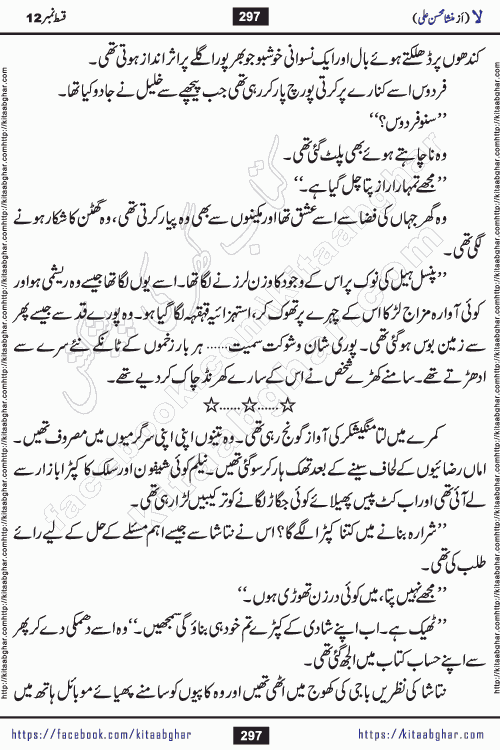 لا (از منشا محسن علی) 297 قسط نمبر 12
کندھوں پر ڈھلکتے ہوئے بال اور ایک نسوانی خوشبو جو بھرپور اگلے پر اثر انداز ہوتی تھی۔
فردوس اسے کنارے پر کرتی پورچ پار کر رہی تھی جب پیچھے سے خلیل نے جادو کیا تھا۔
”سنو فردوس؟“
وہ نا چاہتے ہوئے بھی پلٹ گئی تھی۔
”مجھے تمہارا راز پتا چل گیا ہے۔“
وہ گھر جہاں کی فضا سے اسے عشق تھا اور مکینوں سے بھی وہ پیار کرتی تھی، وہ گھٹن کا شکار ہونے
لگی تھی۔
”پنسل ہیل کی نوک پر اس کے وجود کا وزن لرزنے لگا تھا۔ اسے یوں لگا تھا جیسے وہ ریشمی ہو اور
کوئی آوارہ مزاج لڑکا اس کے چہرے پر تھوک کر، استہزائیہ قہقہہ لگا گیا ہو۔ وہ پورے قد سے جیسے پھر
سے زمین بوس ہو گئی تھی۔ پوری شان و شوکت سمیت...... ہر بار زخموں کے ٹانکے نئے سرے سے
ادھڑتے تھے۔ سامنے کھڑے شخص نے اس کے سارے کھرنڈ چاک کر دیے تھے۔
☆......☆......☆
کمرے میں لتا منگیشکر کی آواز گونج رہی تھی۔ وہ تینوں اپنی اپنی سرگرمیوں میں مصروف تھیں۔
اماں رضائیوں کے لحاف سینے کے بعد تھک ہار کر سو گئی تھیں۔ نیلم کوئی شیفون اور سلک کا کپڑا بازار سے
لے آئی تھی اور اب کٹ پیس پھیلائے کوئی جگاڑ لگانے کو ترکیبیں لڑا رہی تھی۔
”شرارہ بنانے میں کتنا کپڑا لگے گا؟ اس نے نتاشا سے جیسے اہم مسئلے کے حل کے لیے رائے
طلب کی تھی۔
”مجھے نہیں پتا، میں کوئی درزن تھوڑی ہوں۔“
”ٹھیک ہے۔ اب اپنے شادی کے کپڑے تم خود ہی بناؤ گی سمجھیں۔“ وہ اسے دھمکی دے کر پھر
سے اپنے حساب کتاب میں الجھ گئی تھی۔
نتاشا کی نظریں باجی کی کھوج میں اٹھی تھیں اور وہ کاپیوں کو سامنے پھیلائے موبائل ہاتھ میں
https://facebook.com/kitaabghar 297 https://kitaabghar.com